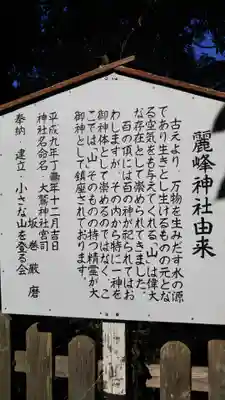 麗峰神社由来
古えより、万物を生みだす水の源
であり生きとし生けるものの元とな
る空気をも与えてくれる「山」は偉大
な存在として崇められてきました。
百の頂には百の神が祀られてはお
わしますが、その内から特に一神を
御神体として崇めるのではなく、こ
こでは、「山」そのものの持つ精霊が大
御神として鎮座されております。
平成九年丁丑年十二月吉日
神社名命名 大鷲神社宮司
坂巻 厳麿
奉納 建立 小さな山を登る会